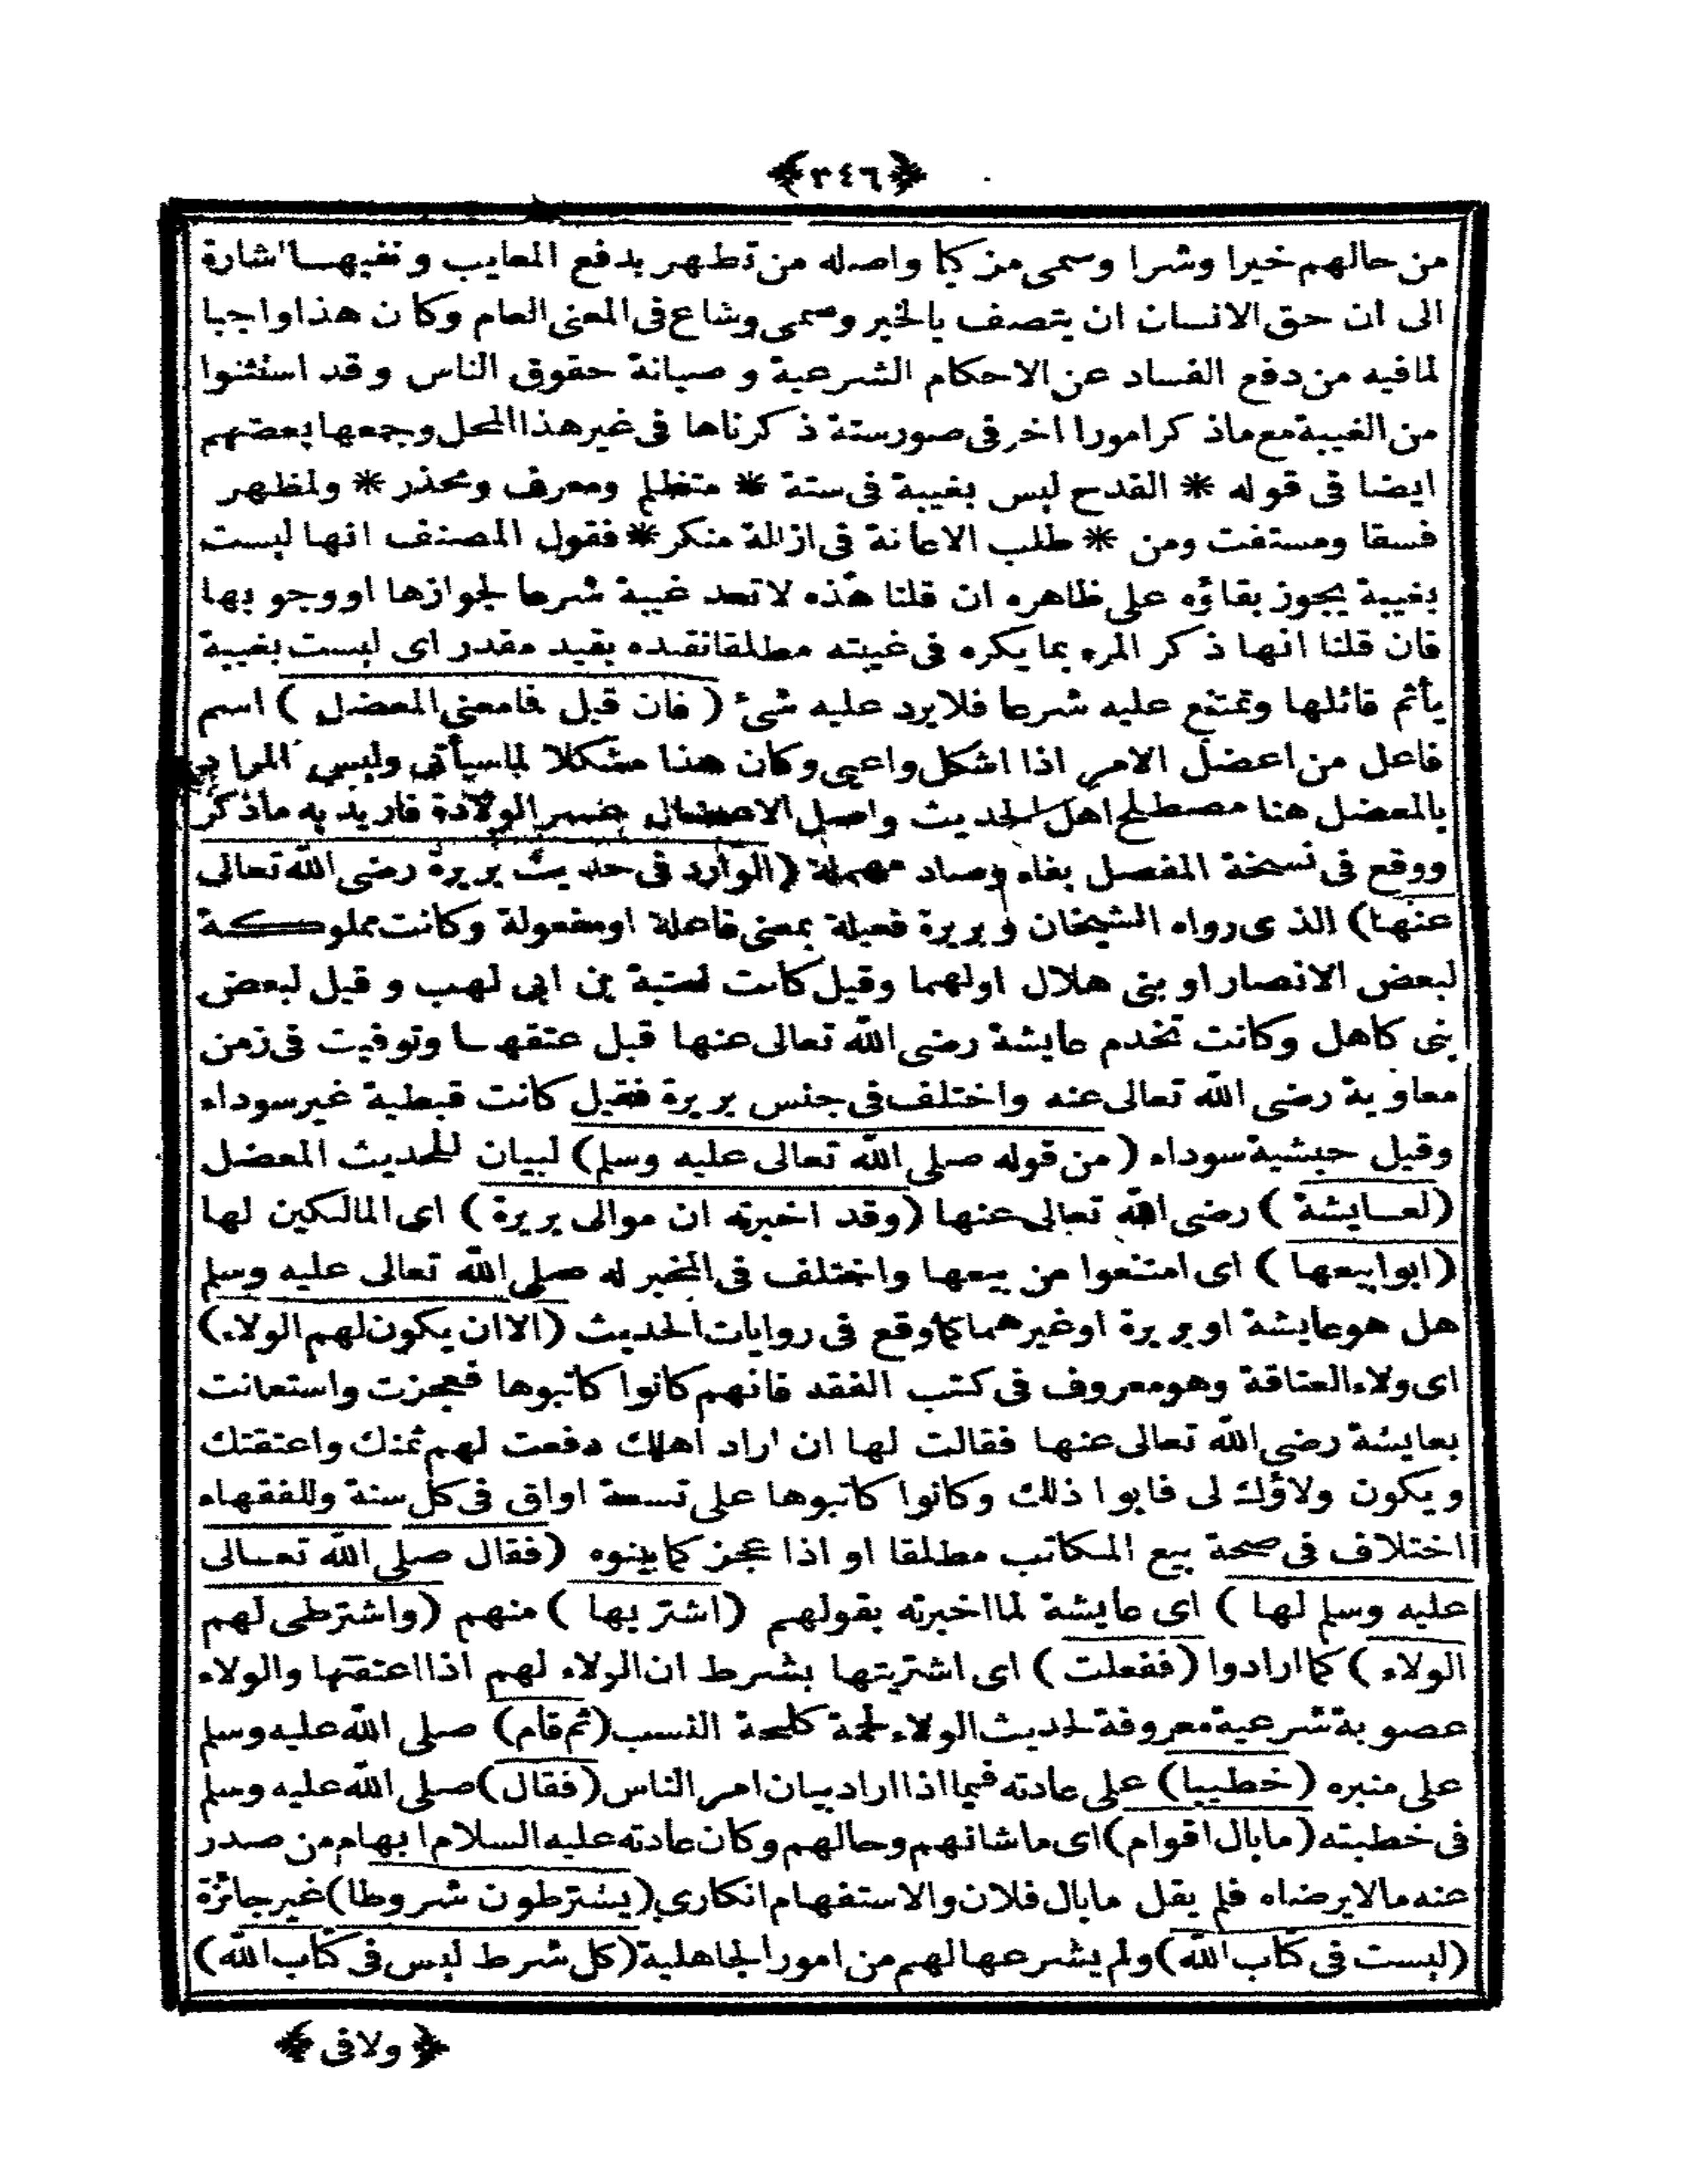 ﴿٣٤٦﴾
من حالهم خيرا وشرا وسمى مزكيا واصله من تطهر بدفع المعايب ونفيهـا اشارة
الى ان حق الانسان ان يتصف بالخير وسمى وشاع فى المعنى العام وكان هذا واجبا
لمافيه من دفع الفساد عن الاحكام الشرعية و صيانة حقوق الناس وقد استثنوا
من الغيبة مع ماذ كر امورا اخر فى صور ستة ذ كرناها فى غير هذا المحل وجمعها بعضهم
ايضا فى قوله * القدح ليس بغيبة فى ستة * متظلم ومعرف ومحذر * ولمظهر
فسقا ومستفت ومن * طلب الاعانة فى ازالة منكر * فقول المصنف انها ليست
بغيبة يجوز بقاؤه على ظاهره ان قلنا هذه لاتعد غيبة شرعا لجوازها او وجو بها
فان قلنا انها ذ كر المرء بما يكره فى غيبته مطلقا نقيده بقيد مقدر اى ليست بغيبة
يأثم قائلها وتمتنع عليه شرعا فلايرد عليه شئ (فان قيل فامعنى المعضل) اسم
فاعل من اعضل الامر اذا اشكل واعيى وكان هنا مشكلا لماسيأتى وليس المراد
بالمعضل هنا مصطلح اهل الحديث واصل الاعضال عسر الولادة فاريد به ماذكر
ووقع فى نسخة المفصل بفاء وصاد مهملة (الوارد فى حديث بريرة رضى الله تعالى
عنها) الذى رواه الشيخان وبريرة فعيلة بمعنى فاعلة او مفعولة وكانت مملوكـة
لبعض الانصار او بنى هلال اولهما وقيل كانت لعتبة بن ابى لهب و قيل لبعض
بنى كاهل وكانت تخدم عايشة رضى الله تعالى عنها قبل عتقهـا وتوفيت فى زمن
معاوية رضى الله تعالى عنه واختلف فى جنس بريرة فقيل كانت قبطية غير سوداء
وقيل حبشية سوداء (من قوله صلى الله تعالى عليه وسلم) لبيان للحديث المعضل
(لعـايشة) رضى الله تعالى عنها (وقد اخبرته ان موالى بريرة) اى المالكين لها
(ابوا بيعها) اى امتنعوا من بيعها واختلف فى المخبر له صلى الله تعالى عليه وسلم
هل هو عايشة او بريرة او غيرهما كاوقع فى روايات الحديث (الا ان يكون لهم الولاء)
اى ولاء العتاقة وهو معروف فى كتب الفقه فانهم كانوا كاتبوها فعجزت واستعانت
بعايشة رضى الله تعالى عنها فقالت لها ان اراد اهلك دفعت لهم ثمنك واعتقتك
ويكون ولاؤك لى فابوا ذلك وكانوا كاتبوها على تسعة اواق فى كل سنة وللفقهاء
اختلاف فى صحة بيع المكاتب مطلقا او اذا عجز كما بينوه (فقال صلى الله تعـالى
عليه وسلم لها) اى عايشة لما اخبرته بقولهم (اشتريها) منهم (واشترطى لهم
الولاء) كما ارادوا (ففعلت) اى اشتريتها بشرط ان الولاء لهم اذا اعتقتها والولاء
عصوبة شرعية معروفة لحديث الولاء لحمة كلحمة النسب (ثم قام) صلى الله عليه وسلم
على منبره (خطيبا) على عادته فيما اذا اراد بيان امر الناس (فقال) صلى الله عليه وسلم
فى خطبته (مابال اقوام) اى ماشانهم وحالهم وكان عادته عليه السلام ابهام من صدر
عنه مالا يرضاه فلم يقل مابال فلان والاستفهام انكاري (يشترطون شروطا) غير جائزة
(ليست فى كتاب الله) ولم يشرعها لهم من امور الجاهلية (كل شرط ليس فى كتاب الله)
﴿ولافى﴾